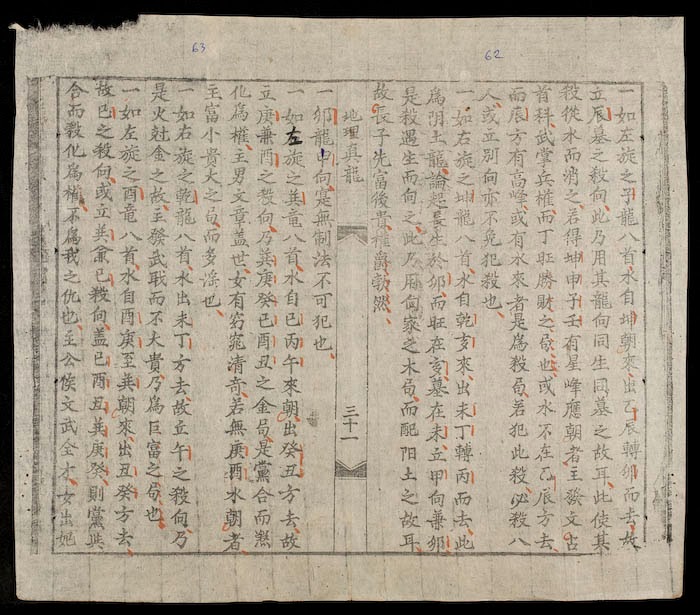 63
62
一如左旋之子龍八首水自坤朝來出乙辰轉卯而去故
立辰墓之殺向此乃用其龍向同生同墓之故耳此使其
殺從水而消之若得坤申子壬有星峰應朝者主發文占
首科武掌兵權而丁旺勝財之局也或水不在乙辰方去
而辰方有高峰或有水來者是為殺局若犯此殺必殺八
人或立別向亦不免犯殺也
一如右旋之坤龍八首水自乾亥來出未丁轉丙而去此
為阴土龍論起長生於卯而旺在亥墓在未立甲向兼卯
是殺遇生而向之此乃屈向家之木局而配阳土之故耳
故長子先富後貴權爵勃然
地理真龍
三十一
一卯龍申向寔無制法不可犯也
一如左旋之巽竜八首水自巳丙午來朝出癸丑方去故
立庚兼酉之殺向乃巽庚癸巳酉丑之金局是黨合而煞
化為權主男文章蓋世女有窈窕清奇若無庚酉水朝者
主富小貴大之局而多滛也
一如右旋之乾龍八首水出未丁方去故丘午之殺向乃
是火尅金之故主發武職而不大貴乃為巨富之局也
一如左旋之酉竜八首水自酉庚至巽朝來出丑癸方去
故巳之殺向或立巽兼巳殺向蓋巳酉丑巽庚癸則黨與
合而殺化為權不為我之仇也主公侯文武全才女出妃